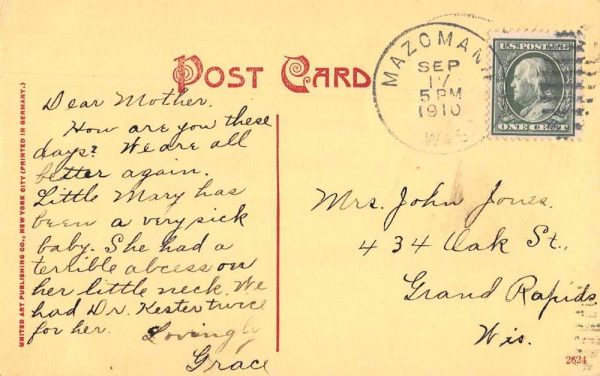 POST CARD
MAZOMANIE
SEP
17
5 PM
1910
WIS
U.S. POSTAGE
ONE CENT
UNITED ART PUBLISHING CO., NEW YORK CITY (PRINTED IN GERMANY.)
Dear Mother.
How are you these
days? We are all
better again.
Little Mary has
been a very sick
baby. She had a
terrible abcess on
her little neck. We
had Dr. Kester twice
for her. Lovingly
Grace
Mrs. John Jones.
434 Oak St.,
Grand Rapids
Wis.
2624